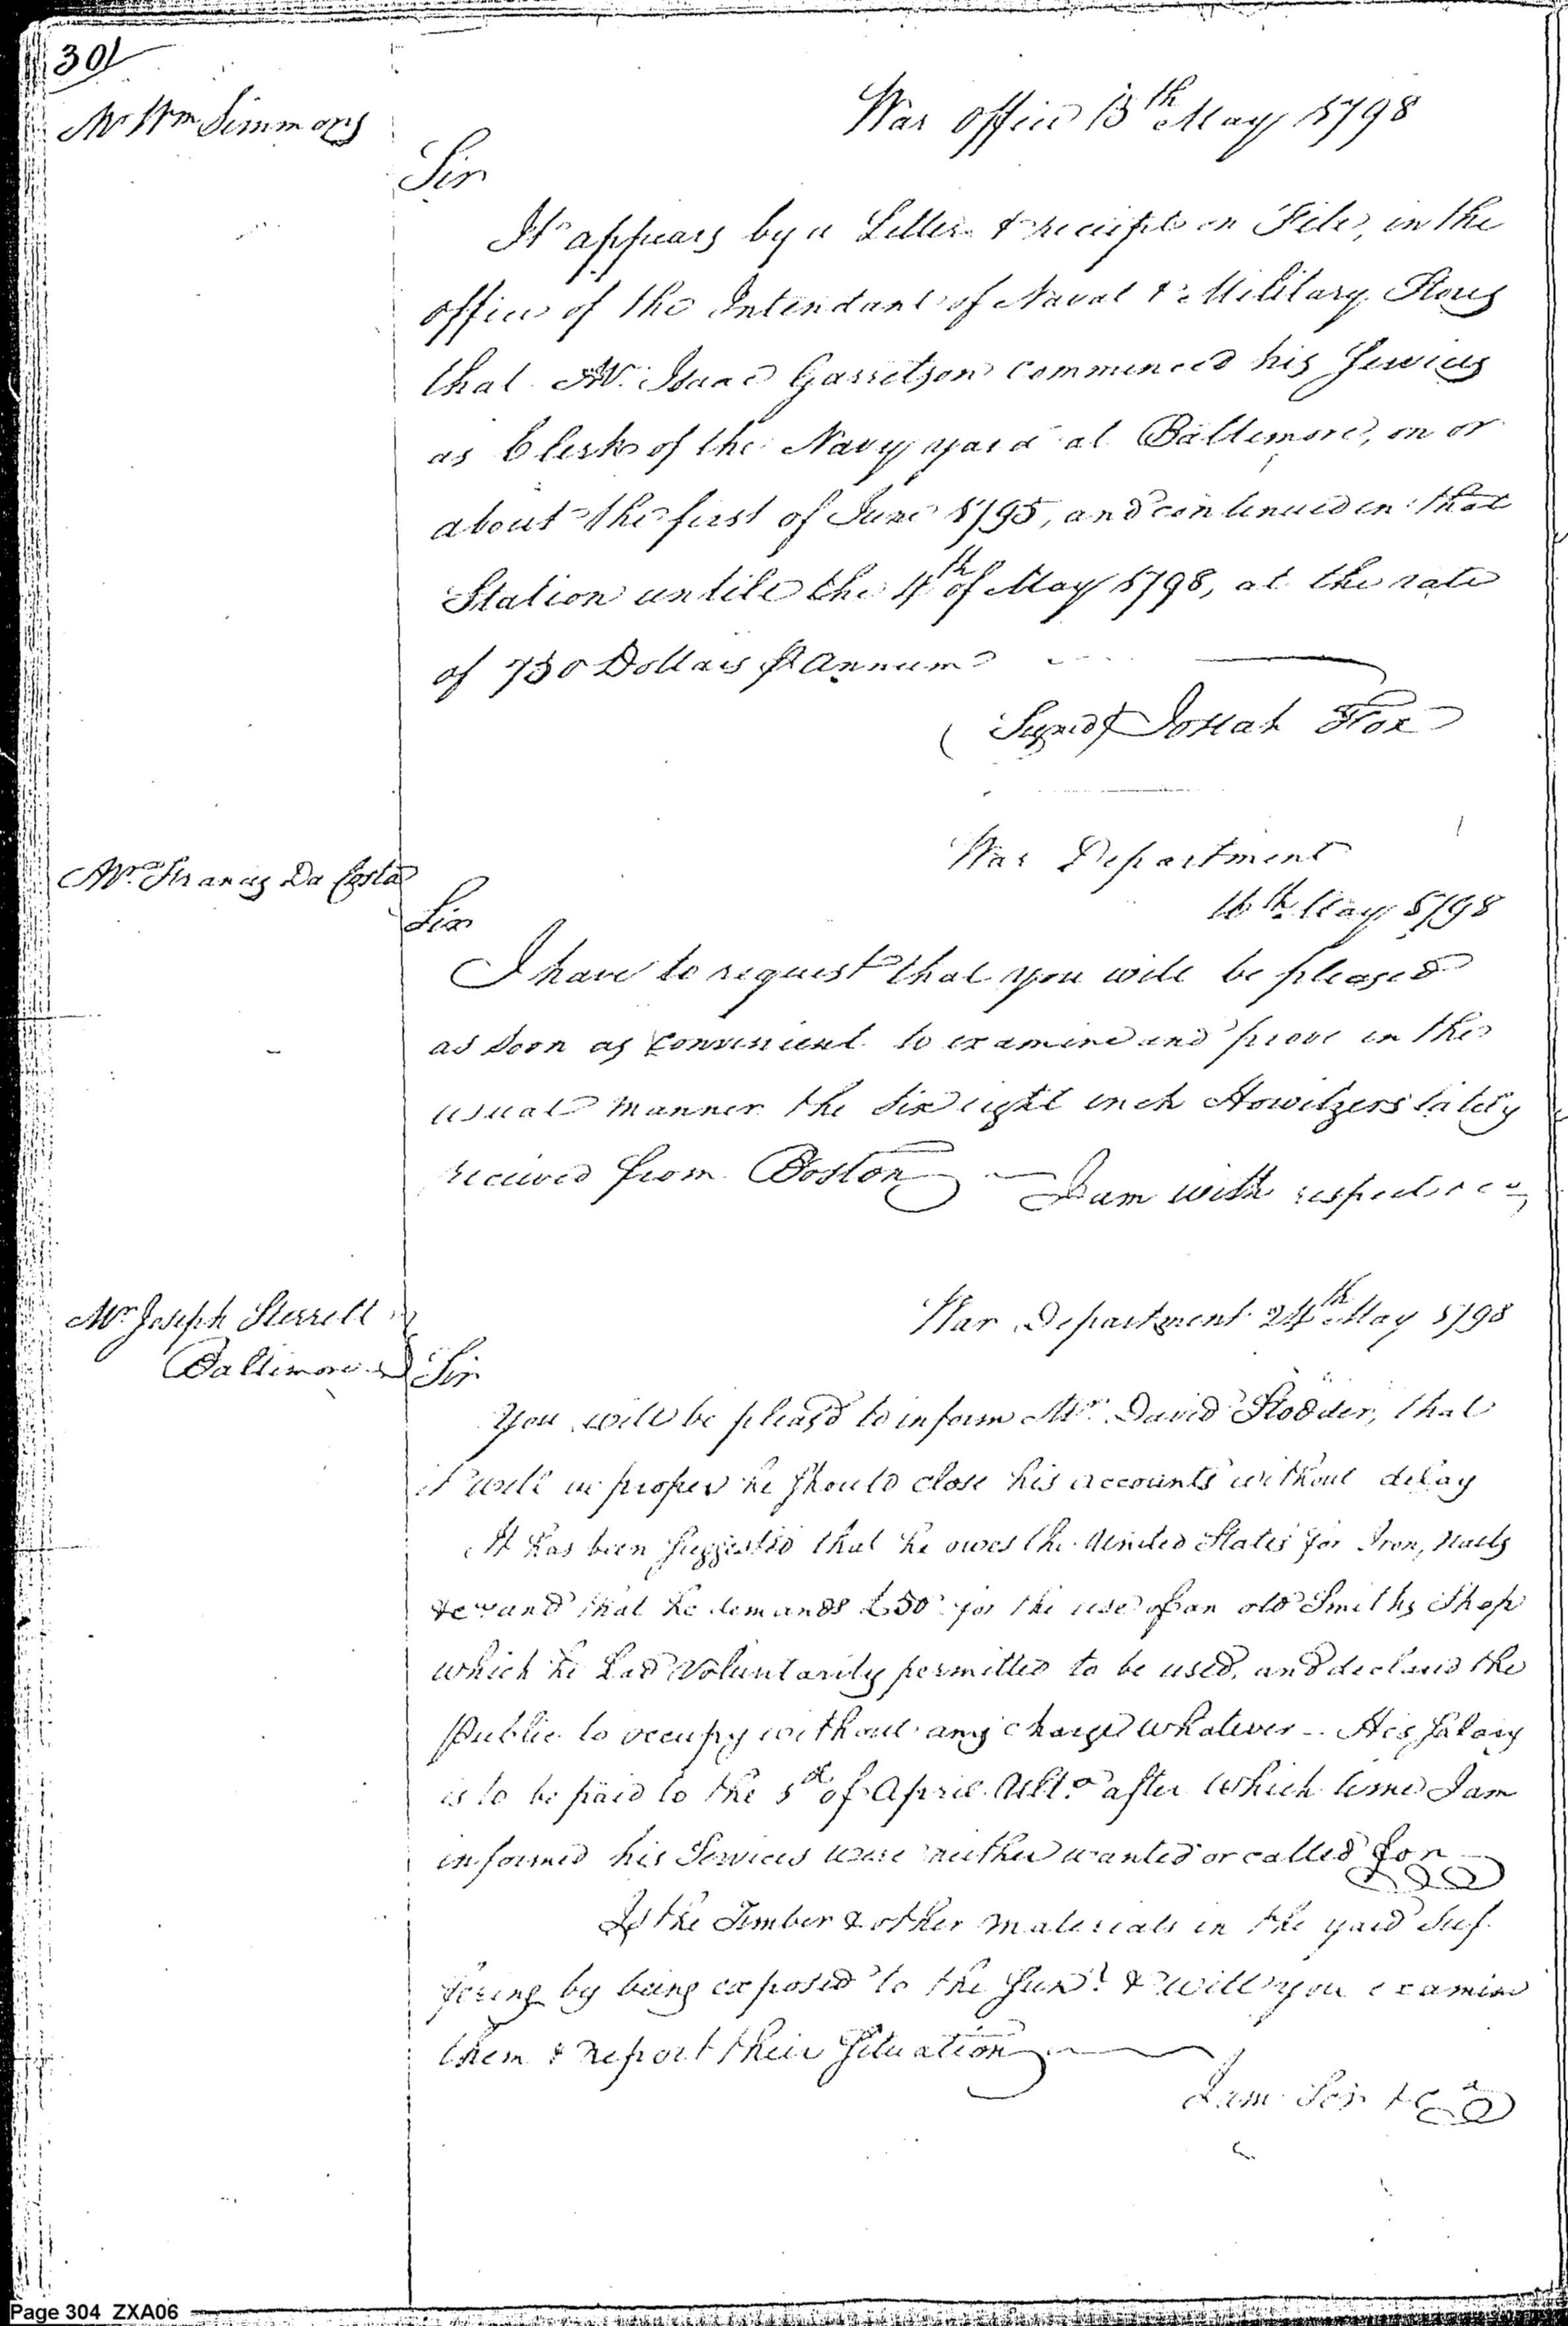 301
Mr Wm Simmons
War Office 15th May 1798
Sir
It appears by a Letter & receipt on File, in the
Office of the Intendant of Naval & Military Stores
that Mr. Isaac Garretson commenced his Services
as Clerk of the Navy yard at Baltimore, on or
about the first of June 1795, and continued in that
Station untill the 4th of May 1798, at the rate
of 750 Dollars P Annum
(Signed) Josiah Fox
War Department
16th May 1798
Mr. Francis Da Costa
Sir
I have to request that you will be pleased
as soon as convenient to examine and prove in the
usual manner the Six eight inch Howitzers lately
received from Boston I am with respect &c
War Department 24th May 1798
Mr Joseph Sterrett
Baltimore
Sir
You will be pleas'd to inform Mr. David Stodder, that
it will be proper he should close his accounts without delay
It has been suggested that he owes the United States for Iron, Nails
&c and that he demands £50 for the use of an old Smiths Shop
which he had Voluntarily permitted to be used, and declared the
Public to occupy without any charge whatever - His Salary
is to be paid to the 1st of April Ulto after which time I am
informed his Services were neither wanted or called for
Is the Timber & other materials in the yard Suf-
fering by being exposed to the Sun? & will you examine
them & report their Situation
I am Sir &c
Page 304 ZXA06